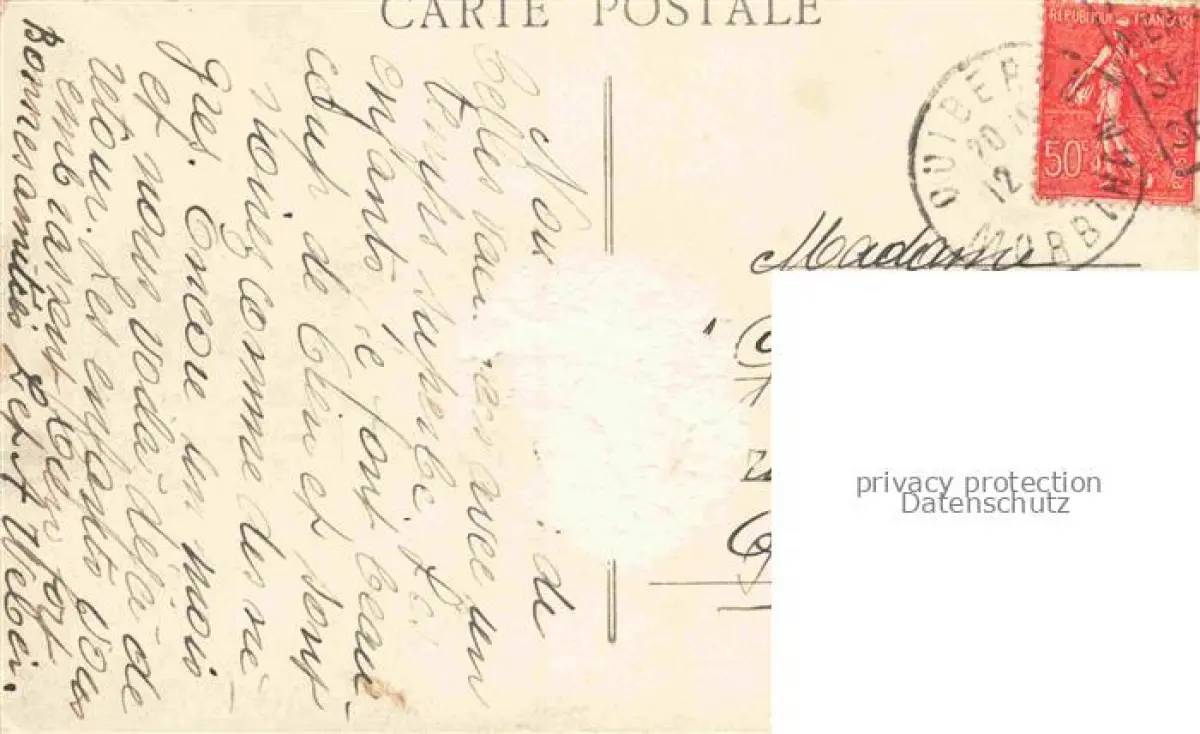 CARTE POSTALE
Nou de
belles vacances avec un
temps superbe. Les
enfants se font beau-
coup de bien et sont
noirs comme des nè-
gres. Encore un mois
et nous voilà déjà de
retour. Les enfants vous
embrassent toujours fort
Bonnes amitiés
REPUBLIQUE FRANÇAISE
50c
POSTES
QUIBERON
20
12
MORBIHAN
Madame
privacy protection
Datenschutz